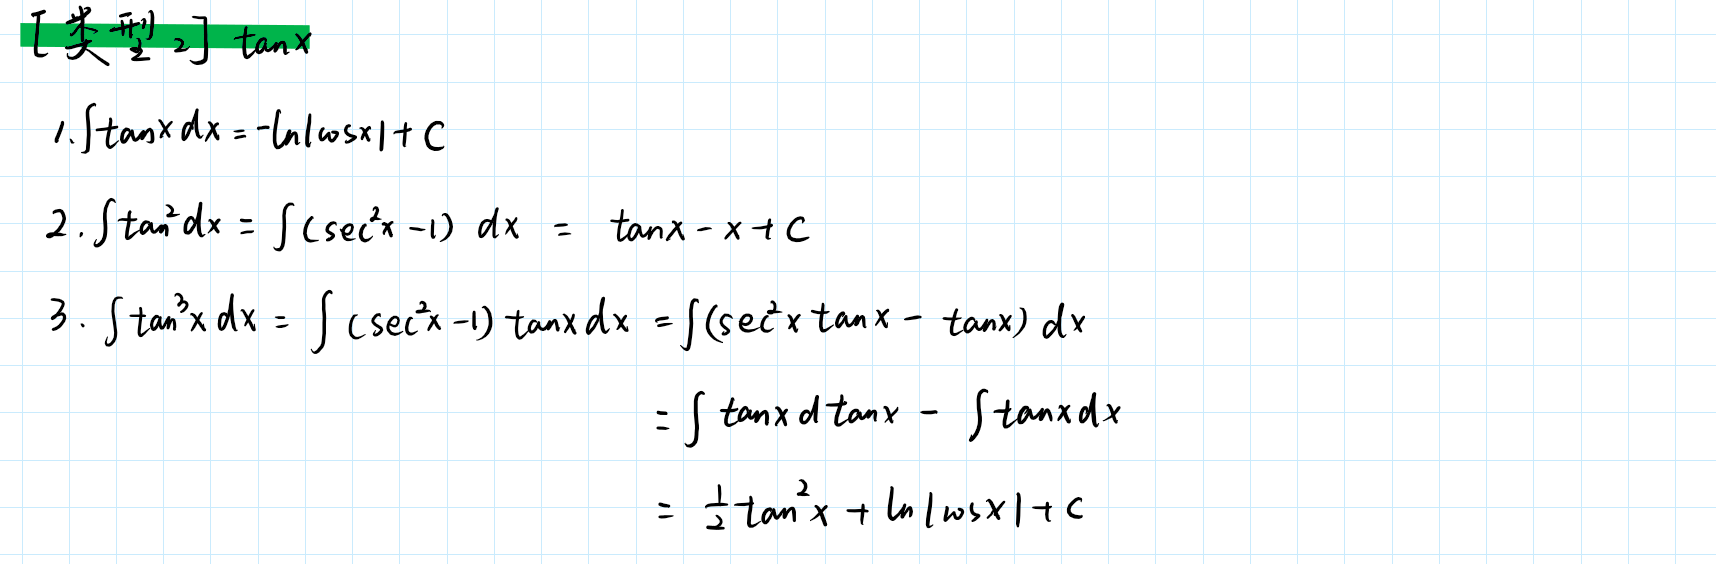 [类型2] tanx
1. ∫tanx dx = -ln|cosx| + C
2. ∫tan²dx = ∫(sec²x -1) dx = tanx - x + C
3. ∫tan³x dx = ∫(sec²x -1) tanx dx = ∫(sec²x tanx - tanx) dx
= ∫tanx d tanx - ∫tanx dx
= ½tan²x + ln|cosx| + C